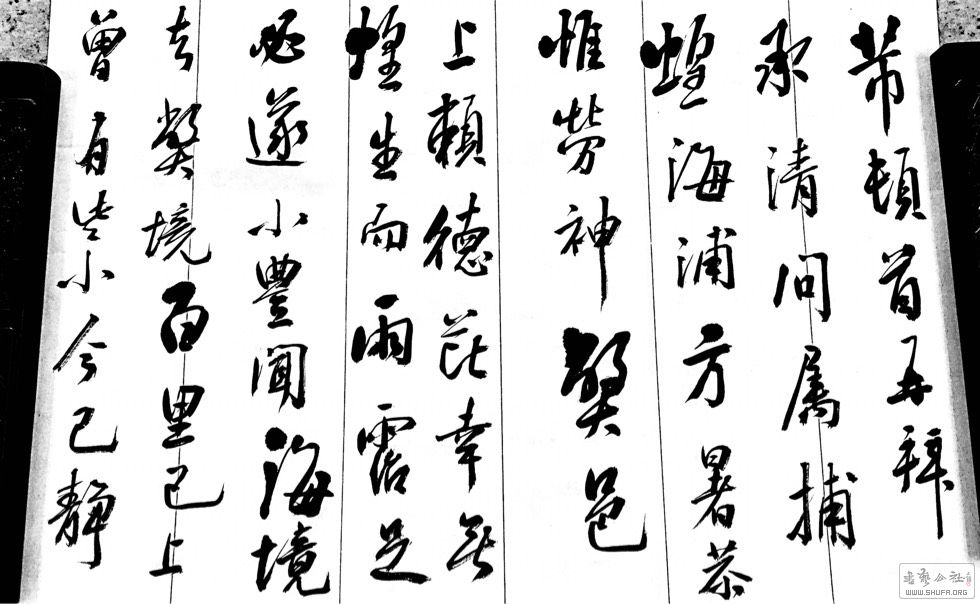 芾頓首再拜
承清問属捕
蝗海浦方暑恭
惟勞神弊邑
上賴德芘幸無
蝗生而雨霑足
必遂小豐聞海境
去弊境百里已上
曾有些小今已靜
书艺公社
WWW.SHUFA.ORG